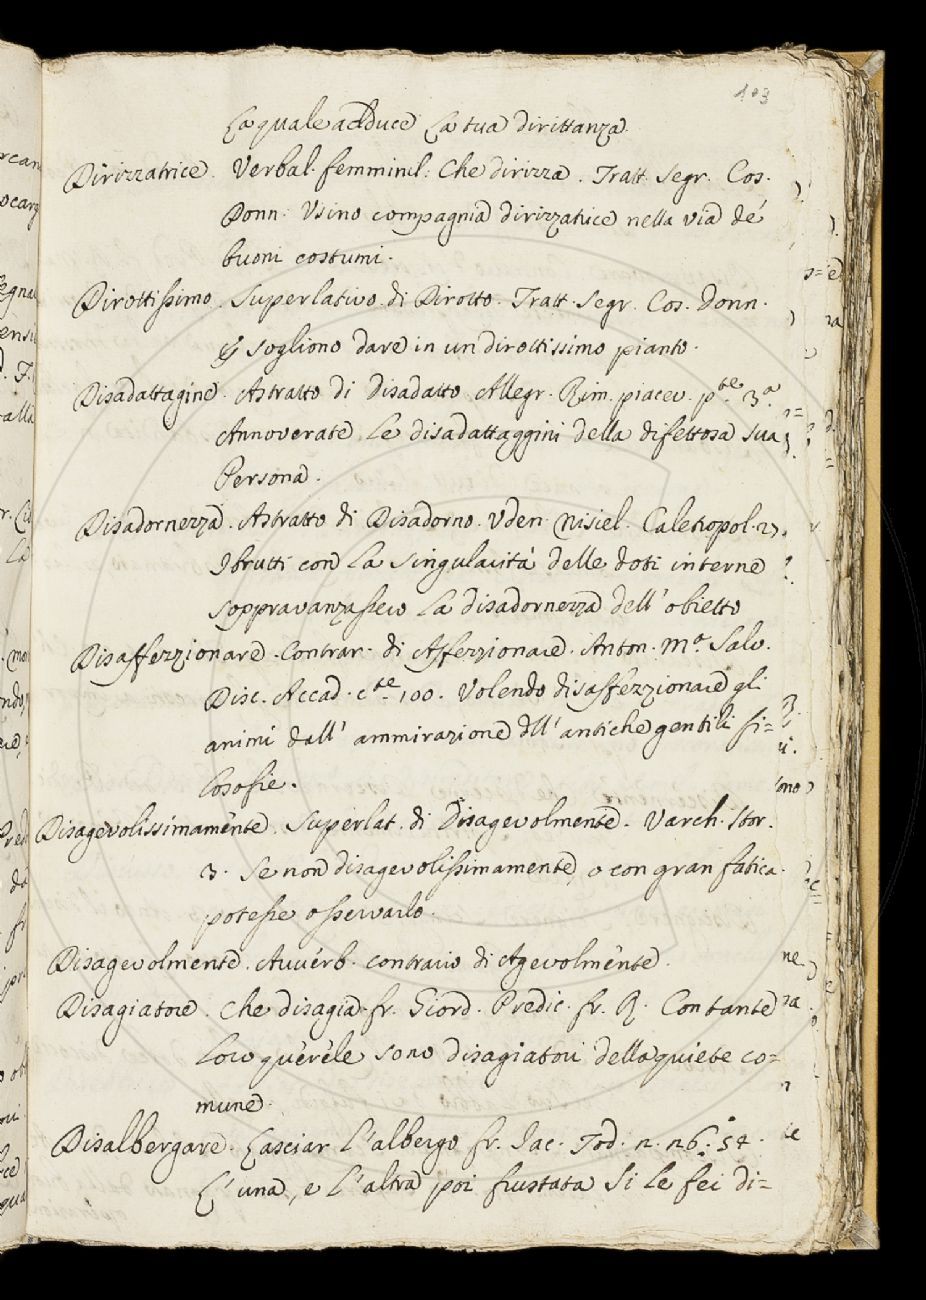 103
La quale adduce La tua dirittanza.
Dirizzatrice. Verbal. femminil: Che dirizza. Tratt. Segr. Cos.
Donn. Usino compagnia dirizzatrice nella via de'
buoni costumi.
Dirottissimo. Superlativo di Dirotto. Tratt. Segr. Cos. Donn.
sogliono dare in un dirottissimo pianto.
Disadattagine. Astratto di disadatto Allegr. Rim. piacev. p.te 3.a
Annoverate le disadattaggini della difettosa sua
Persona.
Disadornezza. Astratto di Disadorno. Uden. Nisiel. Caletropol. 27.
I brutti con la singularità delle doti interne
soppravanzassero la disadornezza dell' obietto
Disaffezzionare. Contrar. di Affezzionare. Anton. M.a Salv.
Disc. Accad. c.te 100. Volendo disaffezzionare gli
animi dall' ammirazione dll' antiche gentili fi=
losofie.
Disagevolissimamente. Superlat. di Disagevolmente. Varch. Stor.
3. Se non disagevolissimamente, o con gran fatica
potesse osservarlo.
Disagevolmente. Avverb. contrario di Agevolmente.
Disagiatore. Che disagia. fr. Giord. Predic. fr. R. Con tante
loro querele sono disagiatori della quiete co=
mune.
Disalbergare. Lasciar l' albergo fr. Jac. Tod. n. 26. 54.
L' una, e l' altra poi frustata Si le fei di=